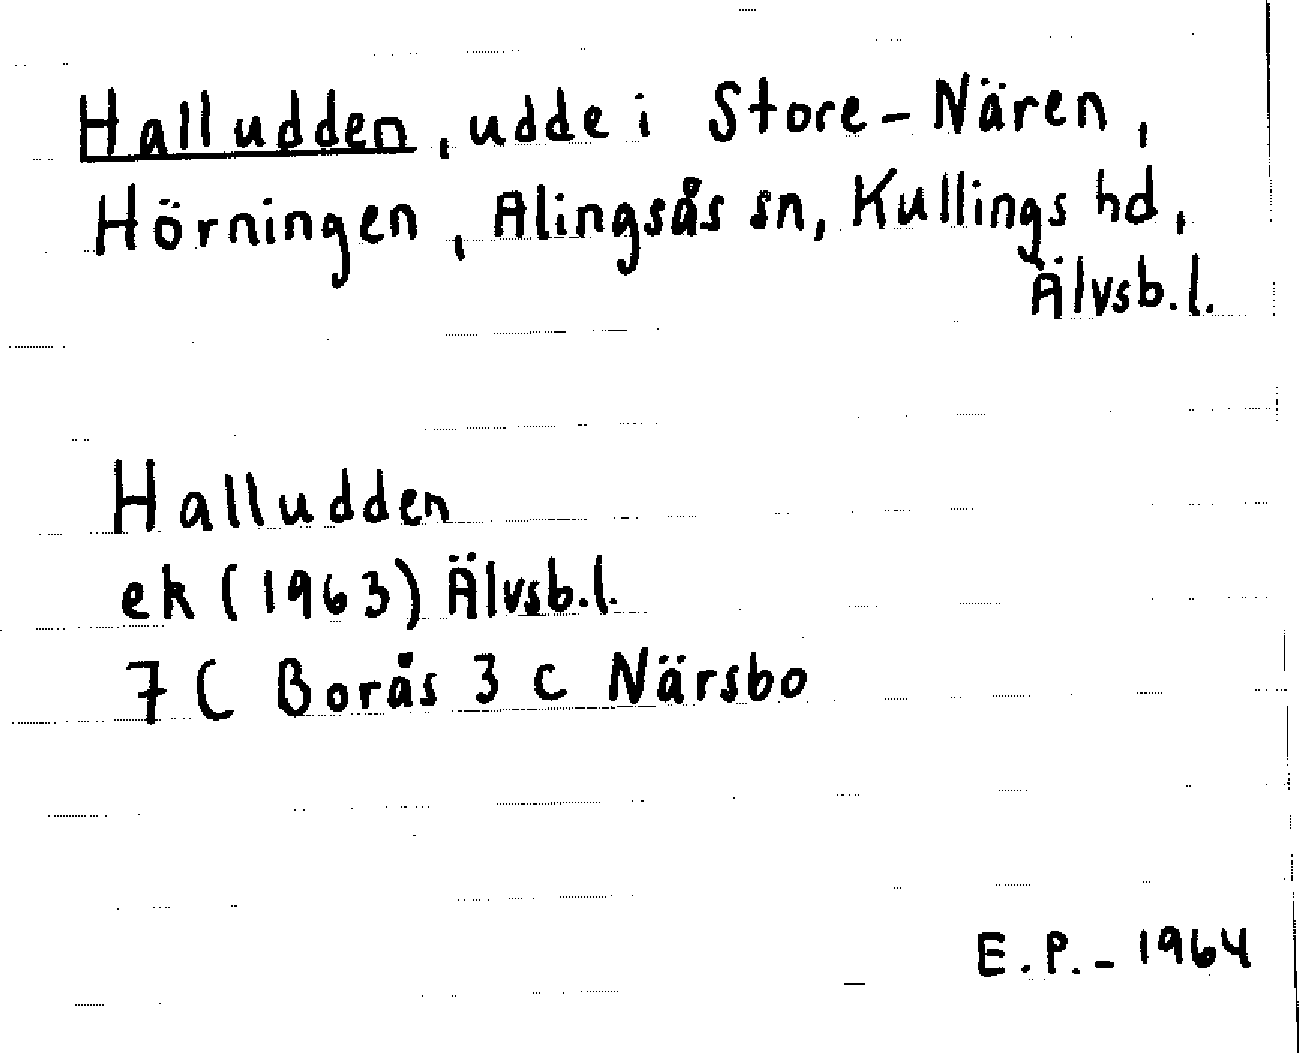 Halludden, udde i Store-Nären,
Hörningen, Alingsås sn, Kullings hd,
Älvsb.l.
Halludden
ek (1963) Älvsb.l.
7 C Borås 3 c Närsbo
E.P.-1964